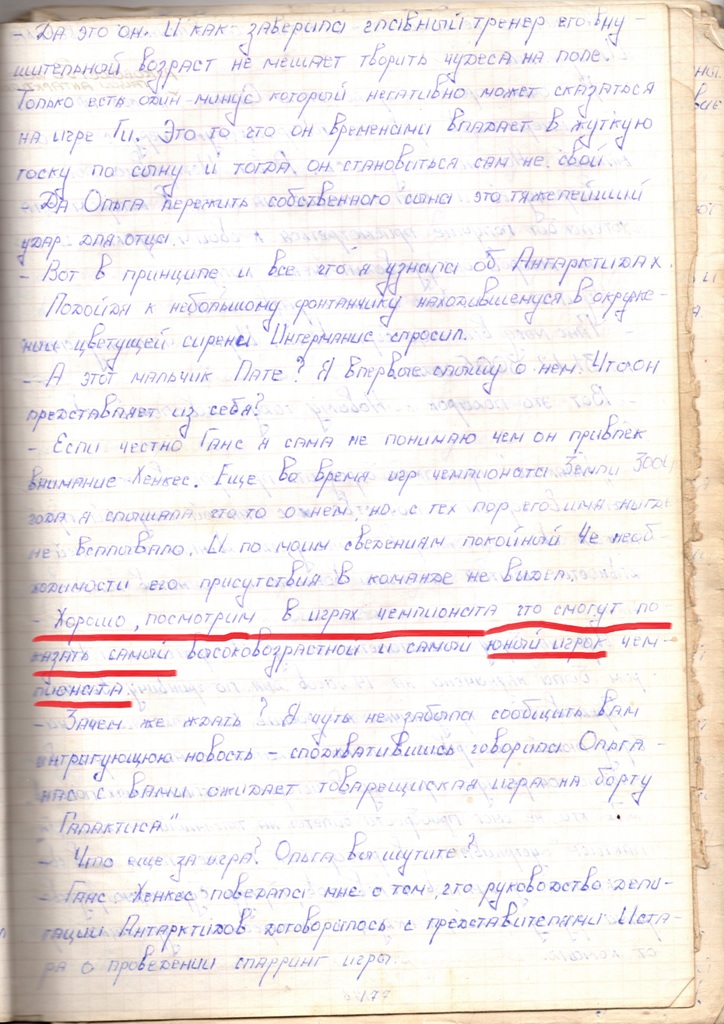 - Да это он. И как заверила главный тренер его вну-
шительной возраст не мешает творить чудеса на поле.
Только есть один минус который негативно может сказаться
на игре Ги. Это то что он временами впадает в жуткую
тоску по сыну и тогда он становиться сам не свой
Да Ольга пережить собственного сына это тяжелейший
удар для отца.
- Вот в принципе и все что я узнала об Антарктидах.
Подойдя к небольшому фонтанчику находившемуся в окруже-
нии цветущей сирени Ингерманис спросил.
- А этот мальчик Пате? Я впервые слышу о нем. Что он
представляет из себя?
- Если честно Ганс я сама не понимаю чем он привлек
внимание Хенкес. Еще во время игр чемпионата Земли 3004
года я слышала что то о нем, но с тех пор его имя нигде
не всплывало. И по моим сведениям покойный Че необ-
ходимости его присутствия в команде не видел.
- Хорошо, посмотрим в играх чемпионата что смогут по
казать самый высоковозрастной и самый юный игрок чем-
пионата.
- Зачем же ждать? Я чуть не забыла сообщить вам
интригующюю новость - спохватившись говорила Ольга -
нас с вами ожидает товарещиская игра на борту
Галактиса"
- Что еще за игра? Ольга вы шутите?
- Ганс Хенкес поведала мне о том, что руководство деле-
гации Антарктидов договорилось с представителями Иста-
ра о проведении спарринг игры.
177